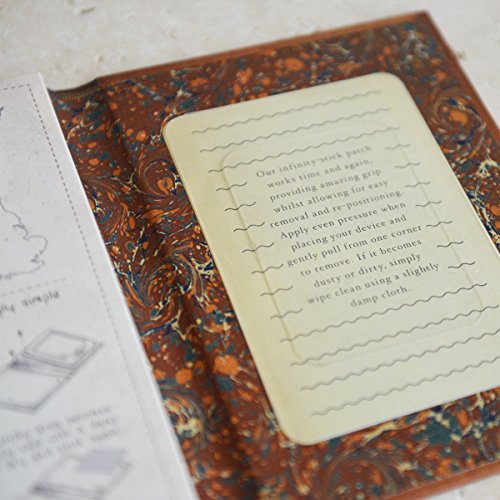 Our infinity-stick patch
works time and again,
providing amazing grip
whilst allowing for easy
removal and re-positioning.
Apply even pressure when
placing your device and
gently pull from one corner
to remove. If it becomes
dusty or dirty, simply
wipe clean using a slightly
damp cloth.
simple